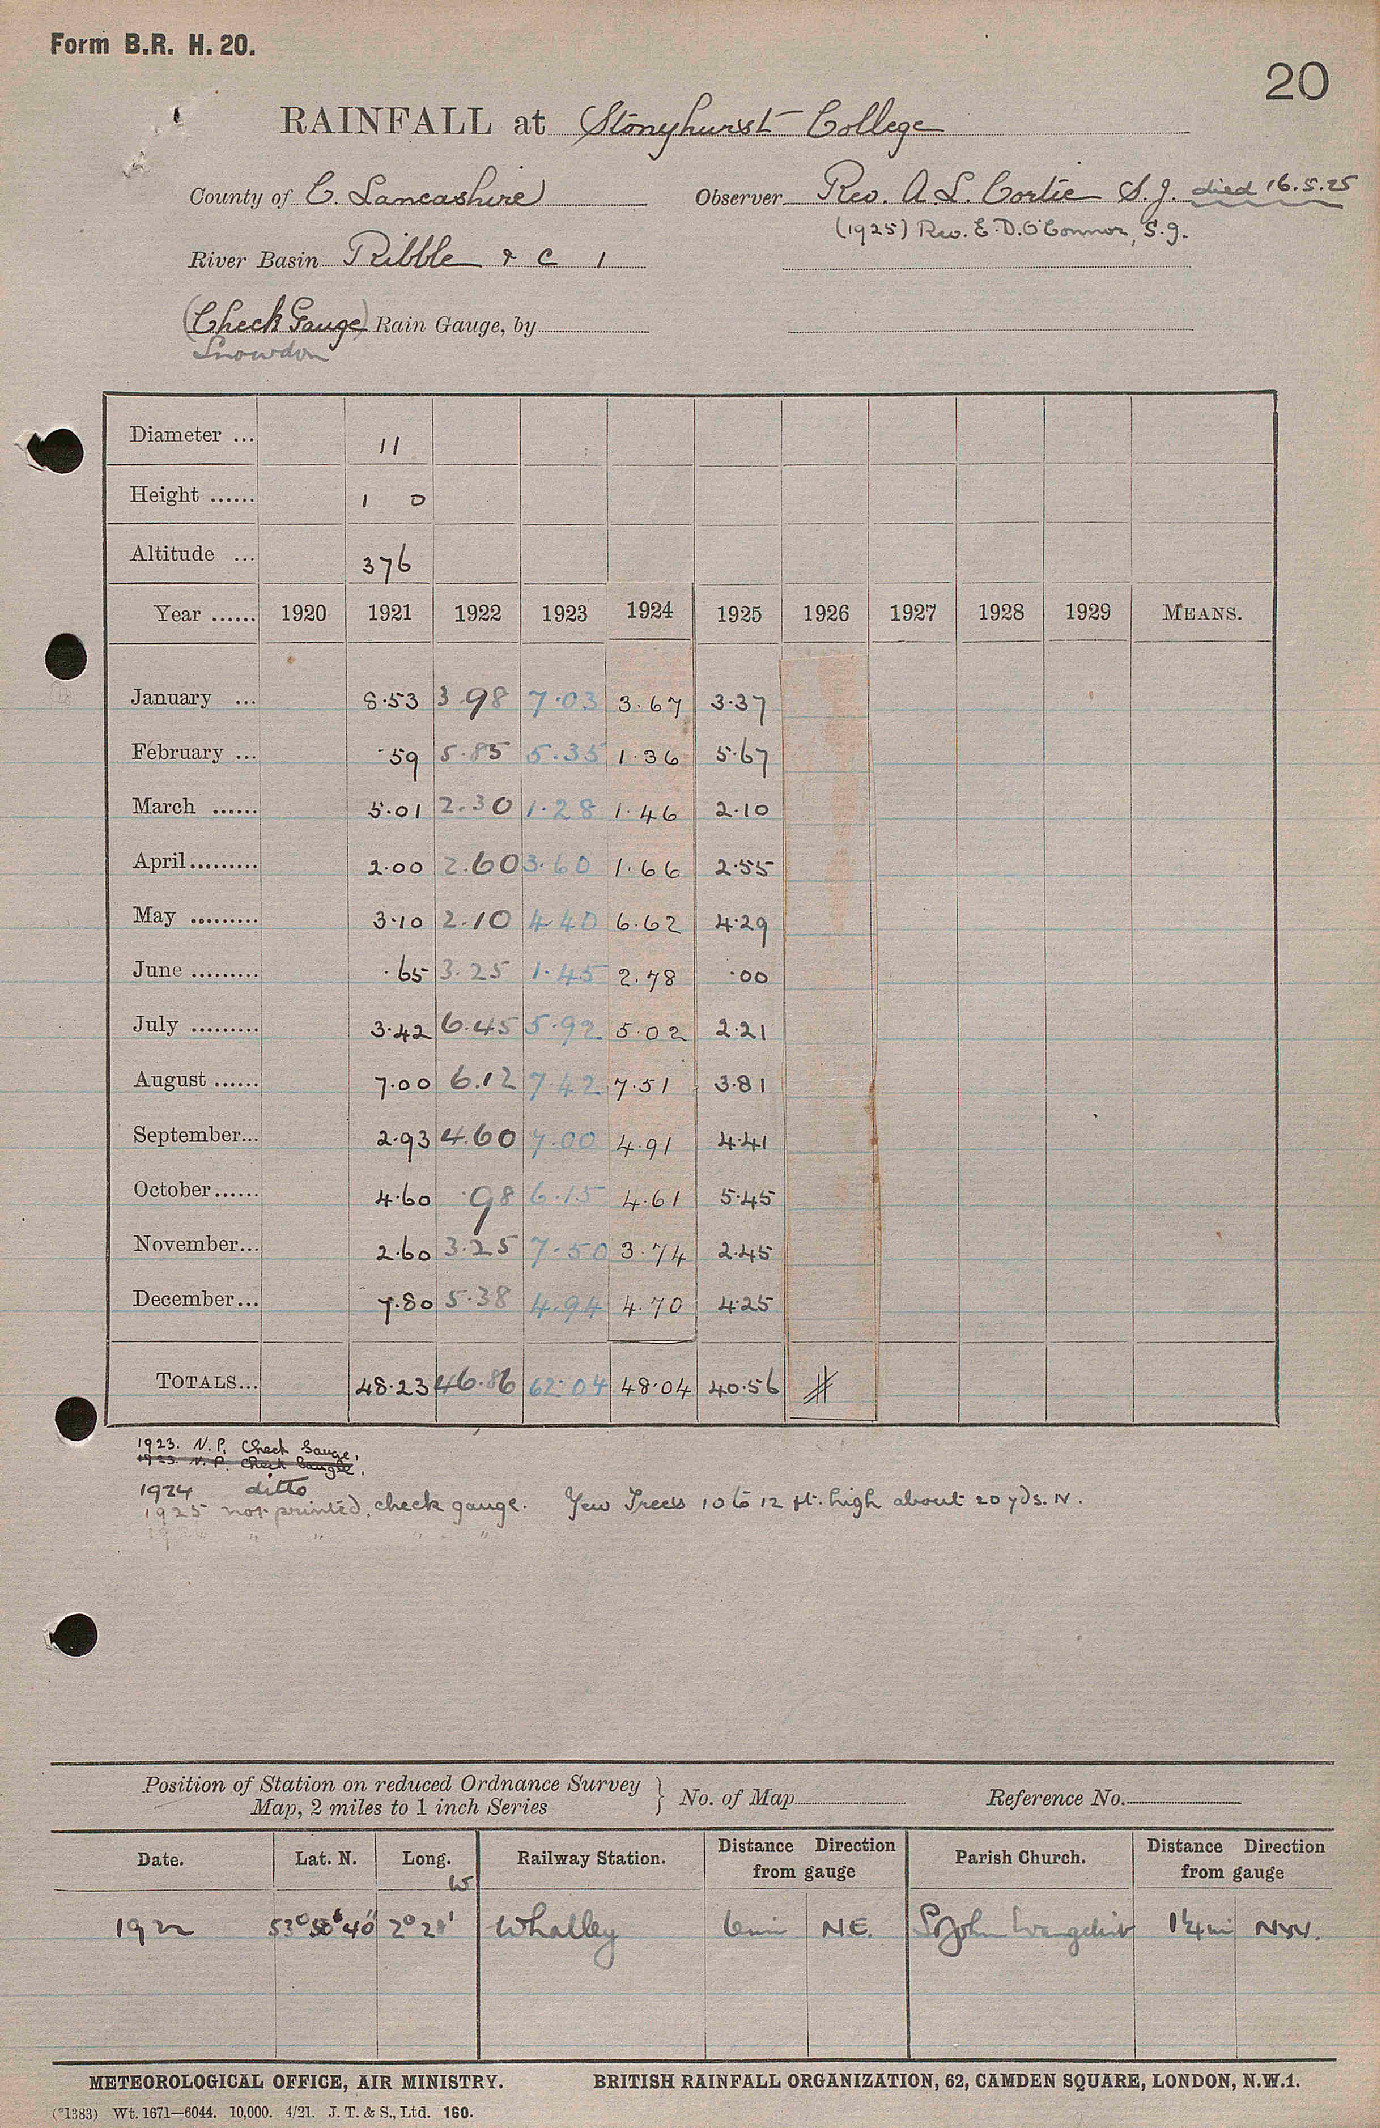 Form B.R. H. 20.
20
RAINFALL at Stonyhurst College
County of C. Lancashire Observer Rev. A L. Cortie S.J. died 16.5.25
(1925) Rev. E. D. O'Connor, S.J.
River Basin Ribble & C 1
(Check Gauge) Rain Gauge, by
Snowdon
Diameter ... 11
Height ...... 1 0
Altitude ... 376
Year ...... 1920 1921 1922 1923 1924 1925 1926 1927 1928 1929 MEANS.
January ... 8.53 3.98 7.03 3.67 3.37
February ... .59 5.85 5.35 1.36 5.67
March ...... 5.01 2.30 1.28 1.46 2.10
April......... 2.00 2.60 3.60 1.66 2.55
May ......... 3.10 2.10 4.40 6.62 4.29
June ......... .65 3.25 1.45 2.78 .00
July ......... 3.42 6.45 5.92 5.02 2.21
August ...... 7.00 6.12 7.42 7.51 3.81
September... 2.93 4.60 7.00 4.91 4.41
October...... 4.60 .98 6.15 4.61 5.45
November... 2.60 3.25 7.50 3.74 2.45
December... 7.80 5.38 4.94 4.70 4.25
TOTALS... 48.23 46.86 62.04 48.04 40.56 #
1923. N.P. Check Gauge.
1923. N.P. Check Gauge.
1924 ditto
1925 not printed, check gauge. Yew Trees 10 to 12 ft. high about 20 yds. N.
" " " "
Position of Station on reduced Ordnance Survey Map, 2 miles to 1 inch Series } No. of Map Reference No.
Date. Lat. N. Long. W Railway Station. Distance Direction from gauge Parish Church. Distance Direction from gauge
1922 53° 50' 40" 2° 28' Whalley 6 mi N.E. S. John Evangelist 1¼ mi NW.
METEOROLOGICAL OFFICE, AIR MINISTRY. BRITISH RAINFALL ORGANIZATION, 62, CAMDEN SQUARE, LONDON, N.W.1.
(*1383) Wt. 1671—6044. 10,000. 4/21. J. T. & S., Ltd. 160.